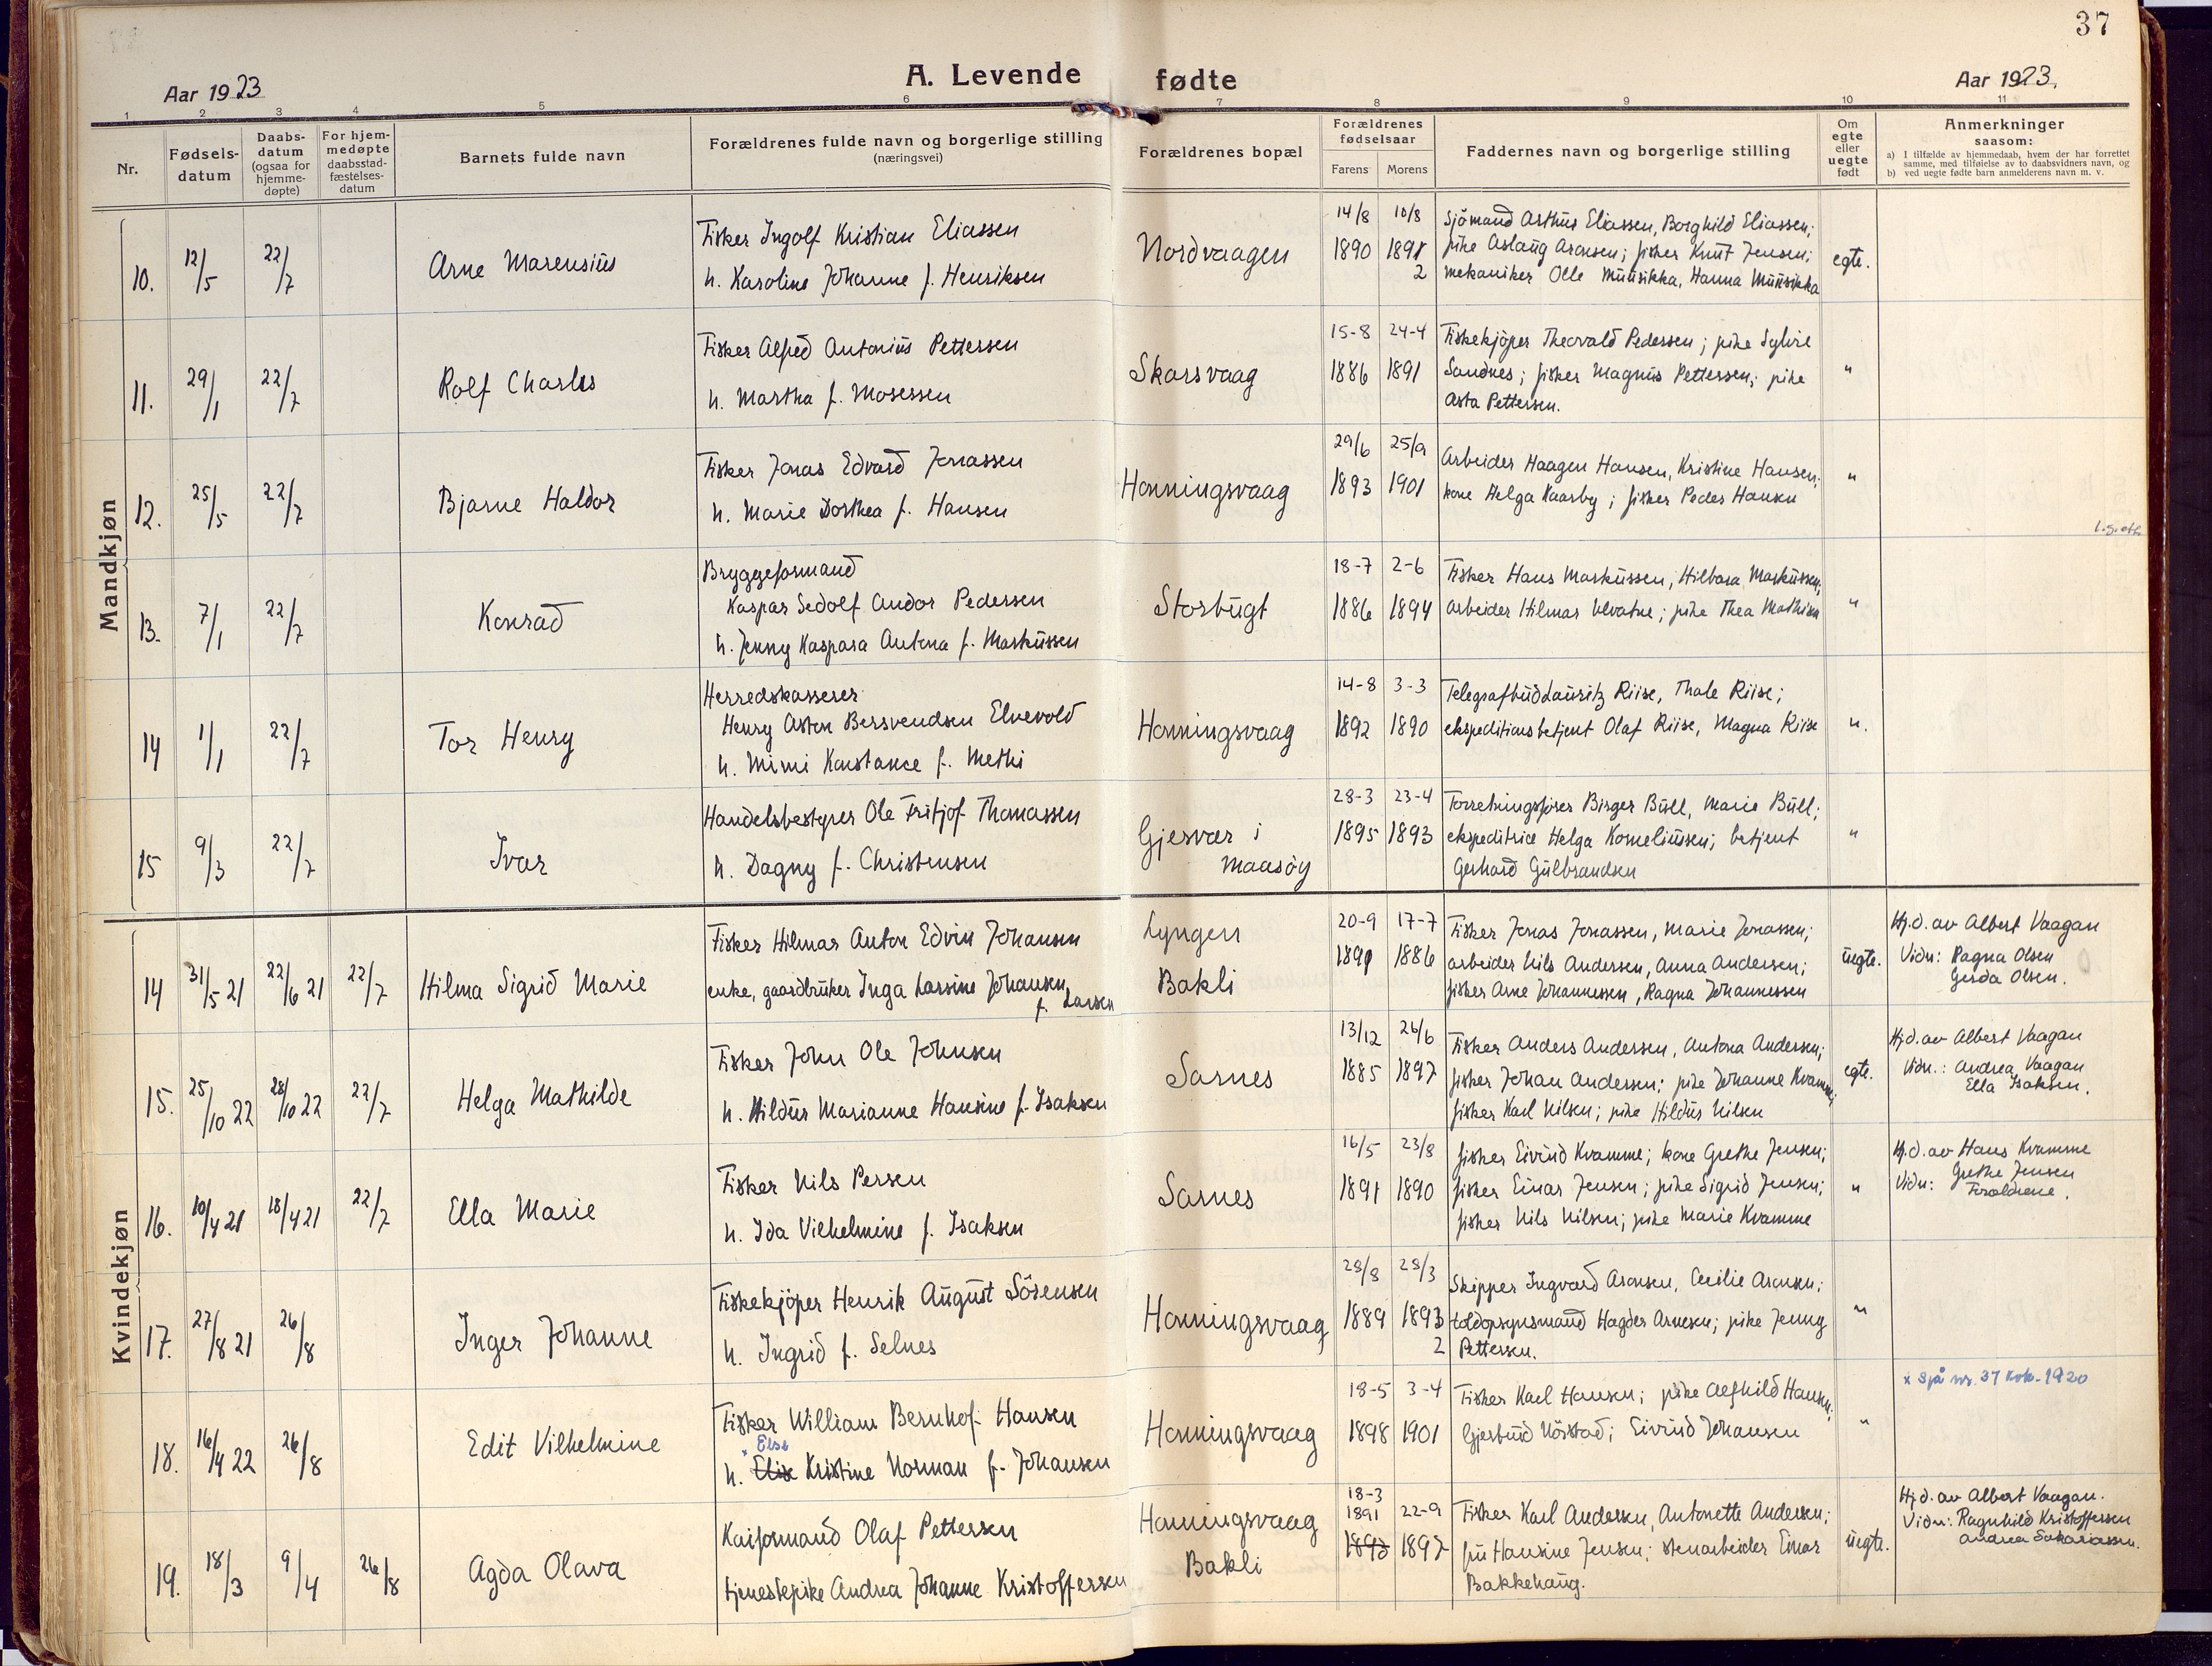 37
Aar 1923
A. Levende fødte
Aar 1923.
1 2 3 4 5 6 7 8 9 10 11
Nr.
Fødsels-
datum
Daabs-
datum
(ogsaa for
hjemme-
døpte)
For hjem-
medøpte
daabsstad-
fæstelses-
datum
Barnets fulde navn
Forældrenes fulde navn og borgerlige stilling
(næringsvei)
Forældrenes bopæl
Forældrenes
fødselsaar
Farens Morens
Faddernes navn og borgerlige stilling
Om
egte
eller
uegte
født
Anmerkninger
saasom:
a) I tilfælde av hjemmedaab, hvem der har forrettet
samme, med tilføielse av to daabsvidners navn, og
b) ved uegte fødte barn anmelderens navn m. v.
Mandkjøn
10. 12/5 22/7 Arne Marensius
Fisker Ingolf Kristian Eliassen
h. Karoline Johanne f. Henriksen
Nordvaagen
14/8 10/8
1890 1891
2
Sjömand Arthur Eliassen, Borghild Eliassen;
pike Aslaug Aronsen; fisker Knut Jensen;
mekaniker Olle Muusikka, Hanna Muusikka
egte.
11. 29/1 22/7 Rolf Charles
Fisker Alfred Antonius Pettersen
h. Martha f. Mosessen
Skarsvaag
15-8 24-4
1886 1891
Fiskekjöper Theovald Pedersen; pike Sylvie
Sandnes; fisker Magnus Pettersen; pike
Asta Pettersen.
"
12. 25/5 22/7 Bjarne Haldor
Fisker Jonas Edvard Jonassen
h. Marie Dorthea f. Hansen
Honningsvaag
29/6 25/9
1893 1901
Arbeider Haagen Hansen, Kristine Hansen;
kone Helga Kaarby; fisker Peder Hansen
"
13. 7/1 22/7 Konrad
Bryggeformand
Kaspar Sedolf Andor Pedersen
h. Jenny Kaspara Antona f. Markussen
Storbugt
18-7 2-6
1886 1894
Fisker Hans Markussen, Hilbora Markussen,
arbeider Hilmar Ulvatne; pike Thea Mathisen
"
14 1/1 22/7 Tor Henry
Herredskasserer
Henry Aston Bersvendsen Elvevold
h. Mimi Konstance f. Methi
Honningsvaag
14-8 3-3
1892 1890
Telegrafbud Lauritz Riise, Thale Riise;
ekspeditionsbetjent Olaf Riise, Magna Riise
".
15 9/3 22/7 Ivar
Handelsbestyrer Ole Fritjof Thomassen
h. Dagny f. Christensen
Gjesvær i
Maasöy
28-3 23-4
1895 1893
Forretningsförer Birger Bull, Marie Bull;
ekspeditrice Helga Korneliussen; betjent
Gerhard Gulbrandsen
"
Kvindekjøn
14 31/5 21 22/6 21 22/7 Hilma Sigrid Marie
Fisker Hilmar Anton Edvin Johansen
enke, gaardbruker Inga Larsine Johansen,
f. Larsen
Lyngen
Bakli
20-9 17-7
1891 1886
Fisker Jonas Jonassen, Marie Jonassen;
arbeider Nils Andersen, Anna Andersen;
fisker Arne Johannessen, Ragna Johannessen
uegte.
Hj.d. av Albert Vaagan
Vidn: Ragna Olsen
Gerda Olsen.
15. 25/10 22 28/10 22 22/7 Helga Mathilde
Fisker John Ole Johnsen
h. Hildur Marianne Hansine f. Isaksen
Sarnes
13/12 26/6
1885 1897
Fisker Anders Andersen, Antona Andersen;
fisker Johan Andersen; pike Johanne Kvamme;
fisker Karl Nilsen; pike Hildur Nilsen
egte.
Hj.d. av Albert Vaagan
Vidn.: Andrea Vaagan
Ella Isaksen.
16. 10/4 21 18/4 21 22/7 Ella Marie
Fisker Nils Persen
h. Ida Vilhelmine f. Isaksen
Sarnes
16/5 23/8
1891 1890
fisker Eivind Kvamme; kone Grethe Jensen;
fisker Einar Jensen; pike Sigrid Jensen;
fisker Nils Nilsen; pike Marie Kvamme
"
Hj.d. av Hans Kvamme
Vidn: Grethe Jensen
Forældrene.
17. 27/8 21 26/8 Inger Johanne
Fiskekjöper Henrik August Sörensen
h. Ingrid f. Selnes
Honningsvaag
28/8 28/3
1889 1893
2
Skipper Ingvard Aronsen, Cecilie Aronsen;
toldopsynsmand Hagder Arnesen; pike Jenny
Pettersen.
"
18. 16/4 22 26/8 Edit Vilhelmine
Fisker William Bernhof Hansen
x Else
h. Elise Kristine Norman f. Johansen
Honningsvaag
18-5 3-4
1898 1901
Fisker Karl Hansen; pike Alfhild Hansen;
Gjertrud Nöstad; Eivind Johansen
"
x Sjå nr. 37 kvk. 1920
19. 18/3 9/4 26/8 Agda Olava
Kaiformand Olaf Pettersen
tjenestepike Andrea Johanne Kristoffersen
Honningsvaag
Bakli
18-3
1891 22-9
1893 1897
Fisker Karl Andersen, Antonette Andersen;
fru Hansine Jensen; stenarbeider Einar
Bakkehaug.
uegte.
Hj.d. av Albert Vaagan.
Vidn: Ragnhild Kristoffersen
Andrea Sakariassen.